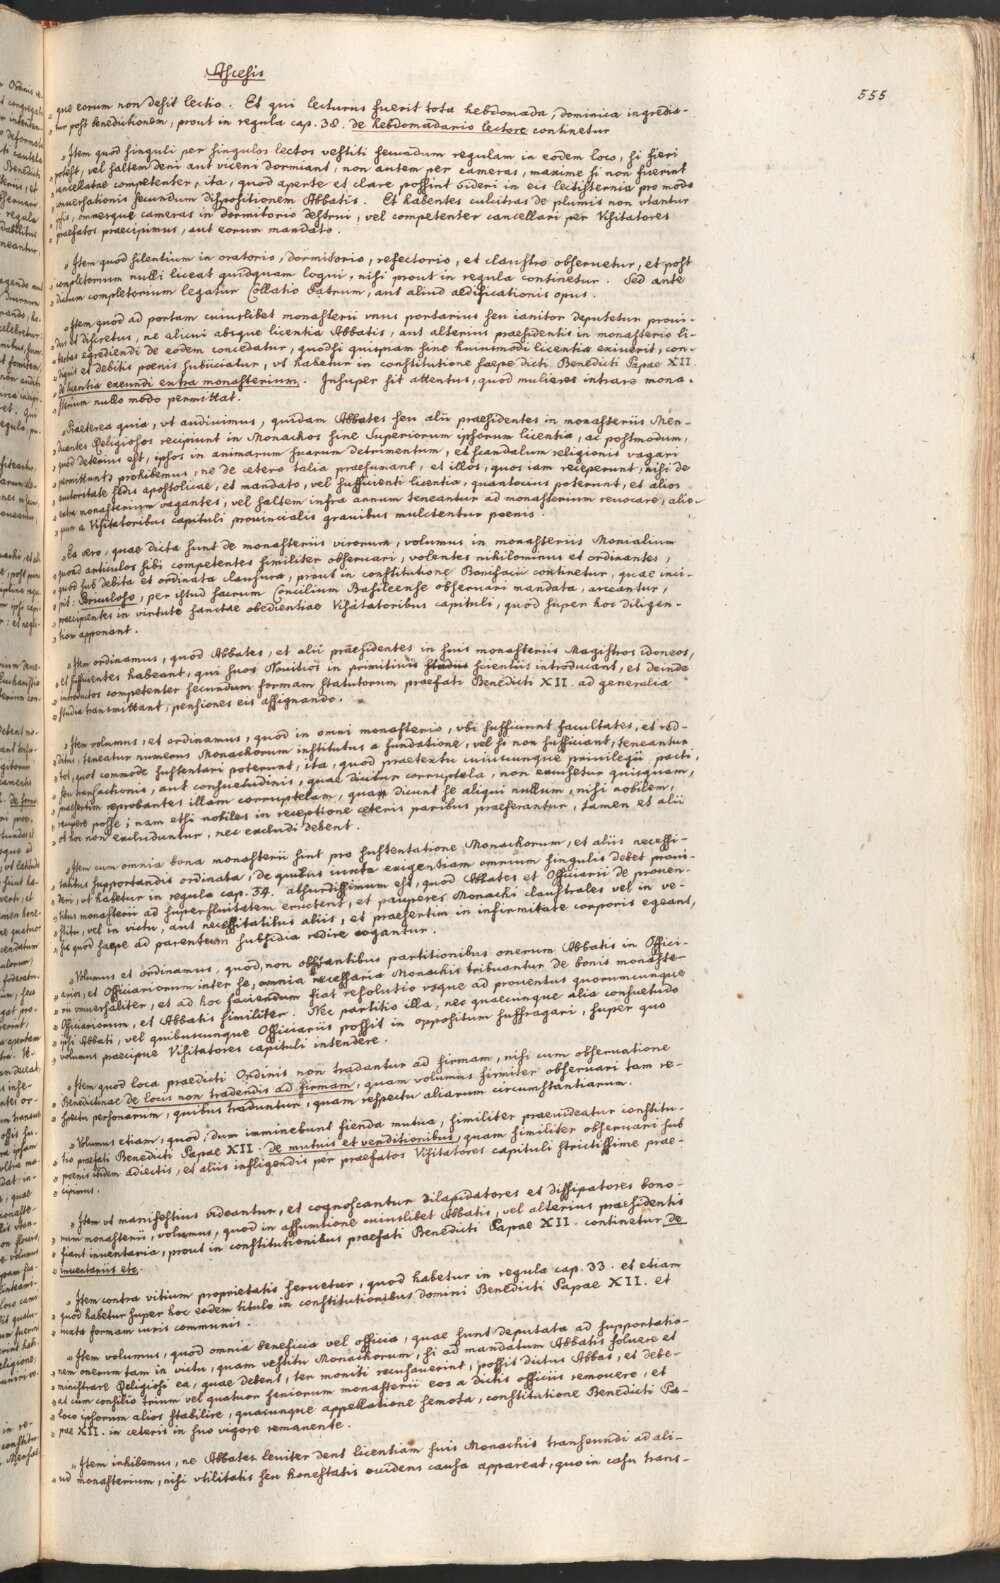 Ascesis
555
» que eorum non desit lectio. Et qui lecturus fuerit tota hebdomada, dominica ingredia-
» tur post benedictionem, prout in regula cap. 38. de hebdomadario lectore continetur
» Item quod singuli per singulos lectos vestiti secundum regulam in eodem loco, si fieri
» potest, vel saltem deni aut viceni dormiant, non autem per cameras, maxime si non fuerint
» cancellatae competenter, ita, quod aperte et clare possint videri in eis lectisternia pro modo
» conversationis secundum dispositionem Abbatis. Et habentes culcitras de plumis non vtantur
» ipsis, omnesque cameras in dormitorio destrui, vel competenter cancellari per Visitatores
» praefatos praecipimus, aut eorum mandato.
» Item quod silentium in oratorio, dormitorio, refectorio, et claustro obseruetur, et post
» completorium nulli liceat quidquam loqui, nisi prout in regula continetur. Sed ante
» dictum completorium legatur Collatio Patrum, aut aliud aedificationis opus.
» Item quod ad portam cuiuslibet monasterii vnus portarius seu ianitor deputetur proui-
» dus et discretus, ne alicui absque licentia Abbatis, aut alterius praesidentis in monasterio li-
» bertas egrediendi de eodem concedatur, quodsi quispiam sine huiusmodi licentia exiuerit, con-
» dignis et debitis poenis subiiciatur, vt habetur in constitutione saepe dicti Benedicti Papae XII.
» de licentia exeundi extra monasterium. Insuper sit attentus, quod mulieres intrare mona-
» sterium nullo modo permittat.
» Praeterea quia, vt audiuimus, quidam Abbates seu alii praesidentes in monasteriis Men-
» dicantes Religiosos recipiunt in Monachos sine Superiorum ipsorum licentia, ac postmodum,
» quod deterius est, ipsos in animarum suarum detrimentum, et scandalum religionis vagari
» permittunt; prohibemus, ne de cetero talia praesumant, et illos, quos iam receperunt, nisi de
» auctoritate sedis apostolicae, et mandato, vel sufficienti licentia, quantocius poterunt, et alios
» extra monasterium vagantes, vel saltem infra annum teneantur ad monasterium reuocare, alio-
» quin a Visitatoribus capituli prouincialis grauibus mulctentur poenis.
» Ea vero, quae dicta sunt de monasteriis virorum, volumus in monasteriis Monialium
» quoad articulos sibi competentes similiter obseruari, volentes nihilominus et ordinantes,
» quod sub debita et ordinata clausura, prout in constitutione Bonifacii continetur, quae inci-
» pit: Periculoso, per istud sacrum Concilium Basileense obseruari mandata, arceantur,
» praecipientes in virtute sanctae obedientiae Visitatoribus capituli, quod super hoc diligen-
» tiam apponant.
» Item ordinamus, quod Abbates, et alii praesidentes in suis monasteriis Magistros idoneos,
» et sufficientes habeant, qui suos Nouitios in primitiuis scientiis introducant, et deinde
» introductos competenter secundum formam statutorum praefati Benedicti XII. ad generalia
» studia transmittant, pensiones eis assignando.
» Item volumus, et ordinamus, quod in omni monasterio, vbi sufficiunt facultates, et red-
» ditus, teneatur numerus Monachorum institutus a fundatione, vel si non sufficiant, teneantur
» tot, quot commode sustentari poterunt, ita, quod praetextu cuiuscunque priuilegii, pacti,
» seu transactionis, aut consuetudinis, quae dicitur corruptela, non excusetur quisquam,
» praesertim reprobantes illam corruptelam, quam dicunt se aliqui nullum, nisi nobilem,
» recipere posse; nam etsi nobiles in receptione ceteris paribus praeferantur, tamen et alii
» ob hoc non excluduntur, nec excludi debent.
» Item cum omnia bona monasterii sint pro sustentatione Monachorum, et aliis necessi-
» tatibus supportandis ordinata, de quibus iuxta exigentiam omnium singulis debet proui-
» deri, vt habetur in regula cap. 34. absurdissimum est, quod Abbates et Officiarii de prouen-
» tibus monasterii ad superfluitatem eructent, et pauperes Monachi claustrales vel in ve-
» stitu, vel in victu, aut necessitatibus aliis, et praesertim in infirmitate corporis egeant,
» sic quod saepe ad parentum subsidia redire cogantur.
» Volumus et ordinamus, quod, non obstantibus partitionibus onerum Abbatis in Offici-
» arios, et Officiariorum inter se, omnia necessaria Monachis tribuantur de bonis monaste-
» rii vniuersaliter, et ad hoc faciendum fiat resolutio vsque ad prouentus quorumcunque
» Officiariorum, et Abbatis similiter. Nec partitio illa, nec quaecunque alia consuetudo
» ipsi Abbati, vel quibuscunque Officiariis possit in oppositum suffragari, super quo
» volumus praecipue Visitatores capituli intendere.
» Item quod loca praedicti Ordinis non tradantur ad firmam, nisi cum obseruatione
» Benedictinae de locis non tradendis ad firmam, quam volumus firmiter obseruari tam re-
» spectu personarum, quibus traduntur, quam respectu aliarum circumstantiarum.
» Volumus etiam, quod, dum imminebunt fienda mutua, similiter praeuideatur constitu-
» tio praefati Benedicti Papae XII. de mutuis et venditionibus, quam similiter obseruari sub
» poenis ibidem adiectis, et aliis infligendis per praefatos Visitatores capituli strictissime prae-
» cipimus.
» Item vt manifestius videantur, et cognoscantur dilapidatores et dissipatores bono-
» rum monasterii, volumus, quod in assumtione cuiuslibet Abbatis, vel alterius praesidentis
» fiant inuentaria, prout in constitutionibus praefati Benedicti Papae XII. continetur de
» inuentariis etc.
» Item contra vitium proprietatis seruetur, quod habetur in regula cap. 33. et etiam
» quod habetur super hoc eodem titulo in constitutionibus domini Benedicti Papae XII. et
» iuxta formam iuris communis.
» Item volumus, quod omnia beneficia vel officia, quae sunt deputata ad supportatio-
» nem onerum tam in victu, quam vestitu Monachorum, si ad mandatum Abbatis soluere et
» ministrare Religiosi ea, quae debent, ter moniti recusauerint, possit dictus Abbas, et debe-
» at cum consilio trium vel quatuor seniorum monasterii eos a dictis officiis remouere, et
» loco ipsorum alios stabilire, quacunque appellatione semota, constitutione Benedicti Pa-
» pae XII. in ceteris in suo vigore remanente.
» Item inhibemus, ne Abbates leuiter dent licentiam suis Monachis transeundi ad ali-
» ud monasterium, nisi vtilitatis seu honestatis euidens causa appareat, quo in casu trans-